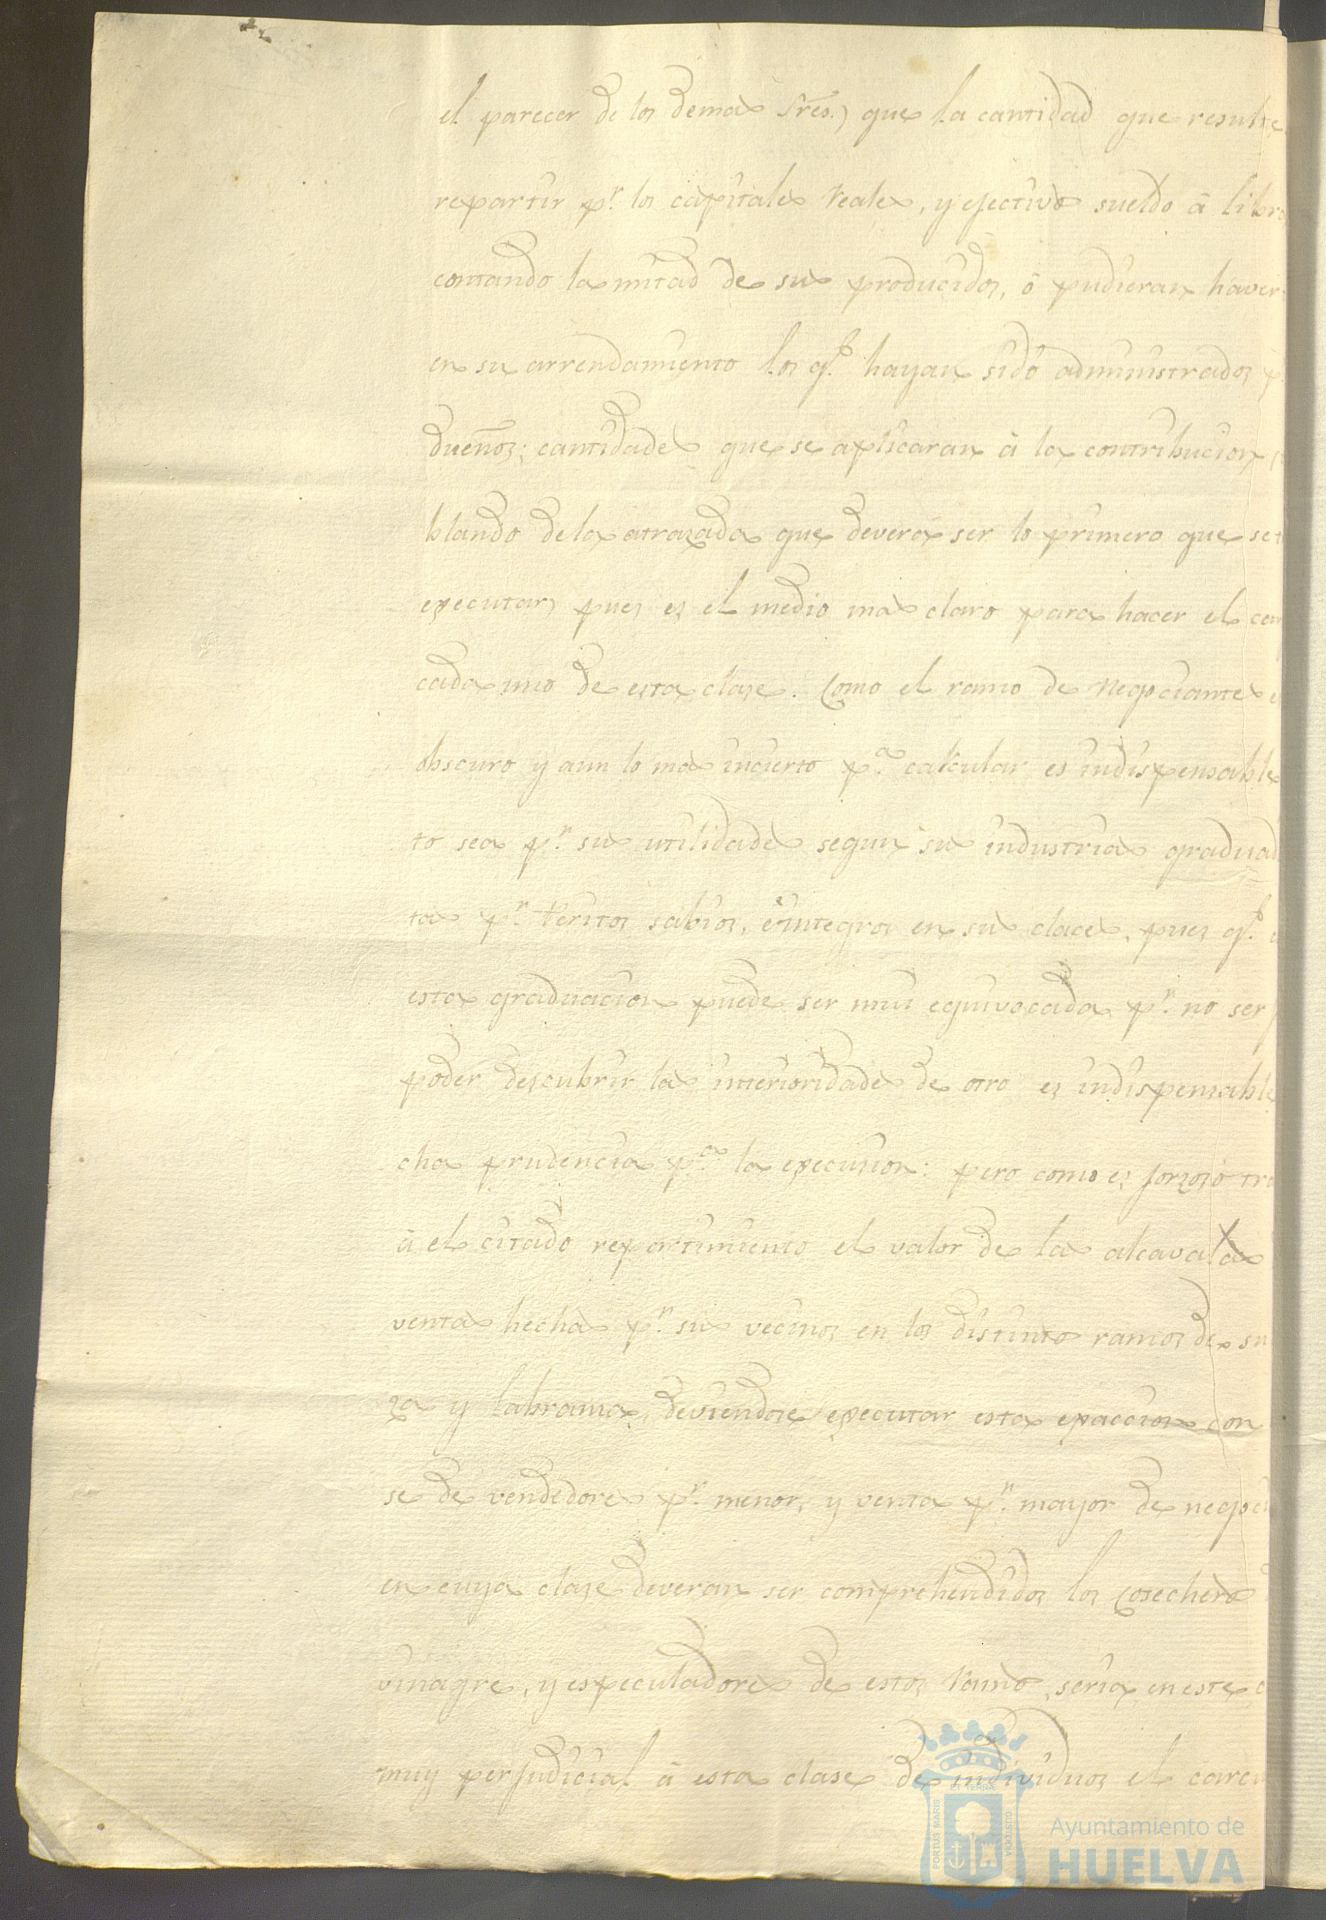 el parecer de los demas Sres.) que la cantidad que resulte
repartir pr. los capitales reales, y efectivos sueldo á libra
contando la mitad de sus producidos, ó pudieran haver
en su arrendamiento los qe. hayan sido administrados p
dueños; cantidades que se aplicaran á la contribucion
blando de la atrazada que deverá ser lo primero que se
executar) pues es el medio mas claro para hacer el
cada uno de esta clase. Como el ramo de Negociantes
obscuro y aun lo mas incierto pa. calcular es indispensable
to sea pr. sus utilidades segun su industria graduad
ta pr. Peritos sabios, é integros en sus claces, pues qe.
esta graduacion puede ser mui equivocada pr. no ser
poder descubrir las interioridades de otro es indispensable
cha prudencia pa. la execusion: pero como es forzoso tra
á el citado repartimiento el valor de la alcavala
venta hecha pr. sus vecinos en los distintos ramos de su
za y labranza, deviendose executar esta exaccion con
se de vendedores pr. menor, y venta pr. mayor de negoci
en cuya clase deveran ser comprehendidos los Cosecheros
vinagre, y especuladores de estos ramos, seria en este
muy perjudicial á esta clase de individuos el
PORTUS MARIS ET TERRAE CUSTODIA
Ayuntamiento de
HUELVA